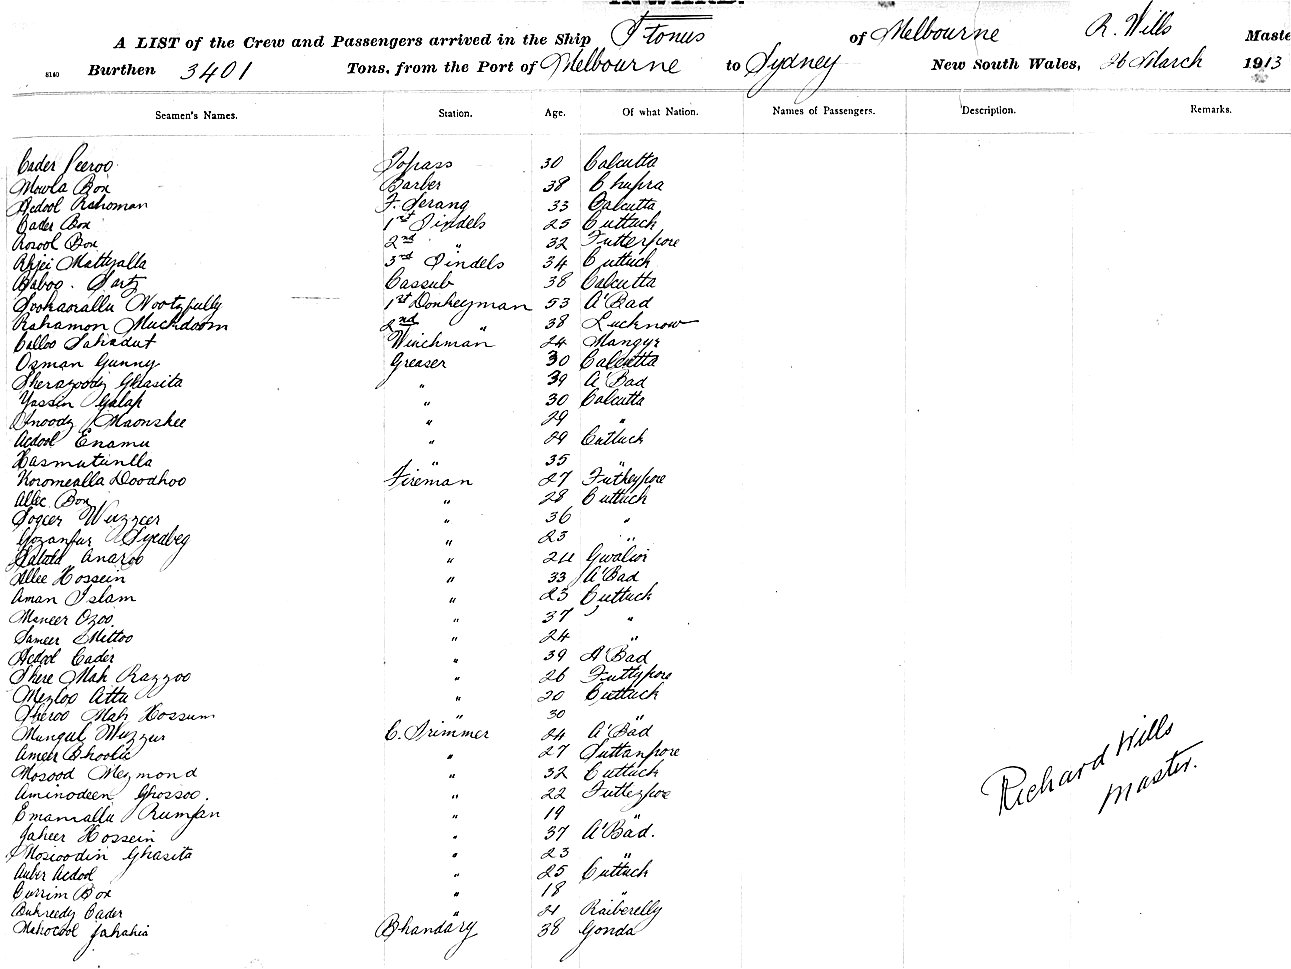 INWARD.
A LIST of the Crew and Passengers arrived in the Ship Itonus of Melbourne R. Wills Maste
8140 Burthen 3401 Tons, from the Port of Melbourne to Sydney New South Wales, 26 March 1913
Seamen's Names. Station. Age. Of what Nation. Names of Passengers. Description. Remarks.
Cader Peeroo Topass 30 Calcutta
Mowla Box Barber 38 Chupra
Acdool Rahoman F. Serang 33 Calcutta
Cader Box 1st Tindels 25 Cuttuck
Rosool Box 2nd " 32 Futterpore
Mattyalla 3rd Tindels 34 Cuttuck
Baboo Cassub 38 Calcutta
1st Donkeyman 53 A'Bad
Rahamon Muckdoom 2nd " 38 Lucknow
Calloo Sahadut Winchman 24 Mangyr
Osman Gunny Greaser 30 Calcutta
Sheragoody Ghasita " 39 A'Bad
Yassin Golap " 30 Calcutta
Maonshee " 29 "
Acdool Enamu " 29 Cuttuck
Hasmutunlla " 35 "
Koromealla Doodhoo Fireman 27 Futheypore
Allee Box " 28 Cuttuck
Wuzzeer " 36 "
Gozanfur Syedbeg " 23 "
Anaroo " 24 Gwalior
Allee Hossein " 33 A'Bad
Aman Islam " 23 Cuttuck
Maneer Ozoo " 37 "
Sameer Mittoo " 24 "
Acdool Cader " 39 A'Bad
Shere Mah Razzoo " 26 Futtypore
Mezloo Attu " 20 Cuttuck
Sheroo Mah Hossum " 30 "
Mungul Wuzzur C. Trimmer 24 A'Bad
Ameer Bhoolie " 27 Suttanpore
Mosood Meymond " 32 Cuttuck
Aminodeen Ghossoo. " 22 Futterpoe
Emamalla Rumjan " 19 "
Jaheer Hossein " 37 A'Bad.
Mosioodin Ghasita " 23 "
Auber Acdool " 25 Cuttuck
Currim Box " 18 "
Buhreedy Cader " 21 Raiberelly
Mahocool Jahahia Bhandary 38 Gonda
Richard Wills
Master.